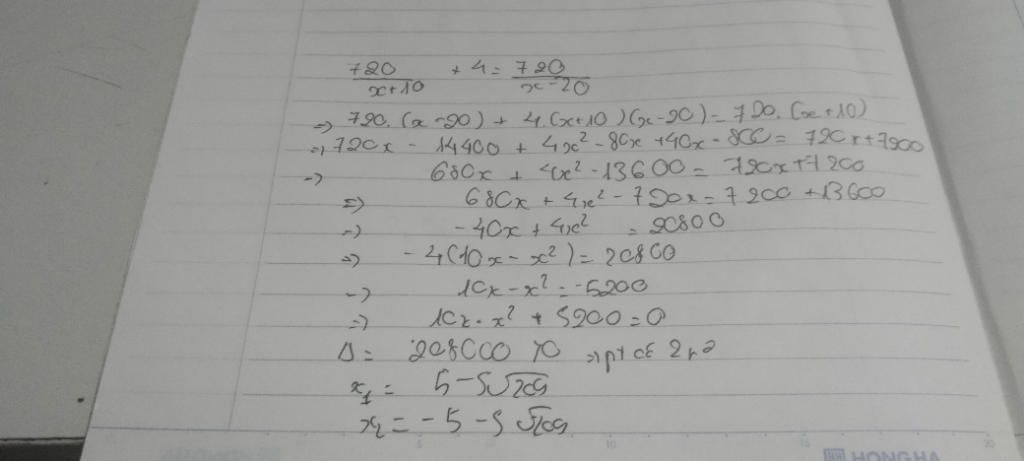 720/(x+10) + 4 = 720/(x-20)
=> 720.(x-20) + 4.(x+10)(x-20) = 720.(x+10)
=> 720x - 14400 + 4x² - 80x + 40x - 800 = 720x + 7200
=> 680x + 4x² - 13600 = 720x + 7200
=> 680x + 4x² - 720x = 7200 + 13600
=> -40x + 4x² = 20800
=> -4(10x - x²) = 20800
=> 10x - x² = -5200
=> 10x - x² + 5200 = 0
Δ = 208000 > 0 => pt có 2 no
x₁ = 5 - 5√209
x₂ = -5 - 5√209
HONGHA
5 10 15 20